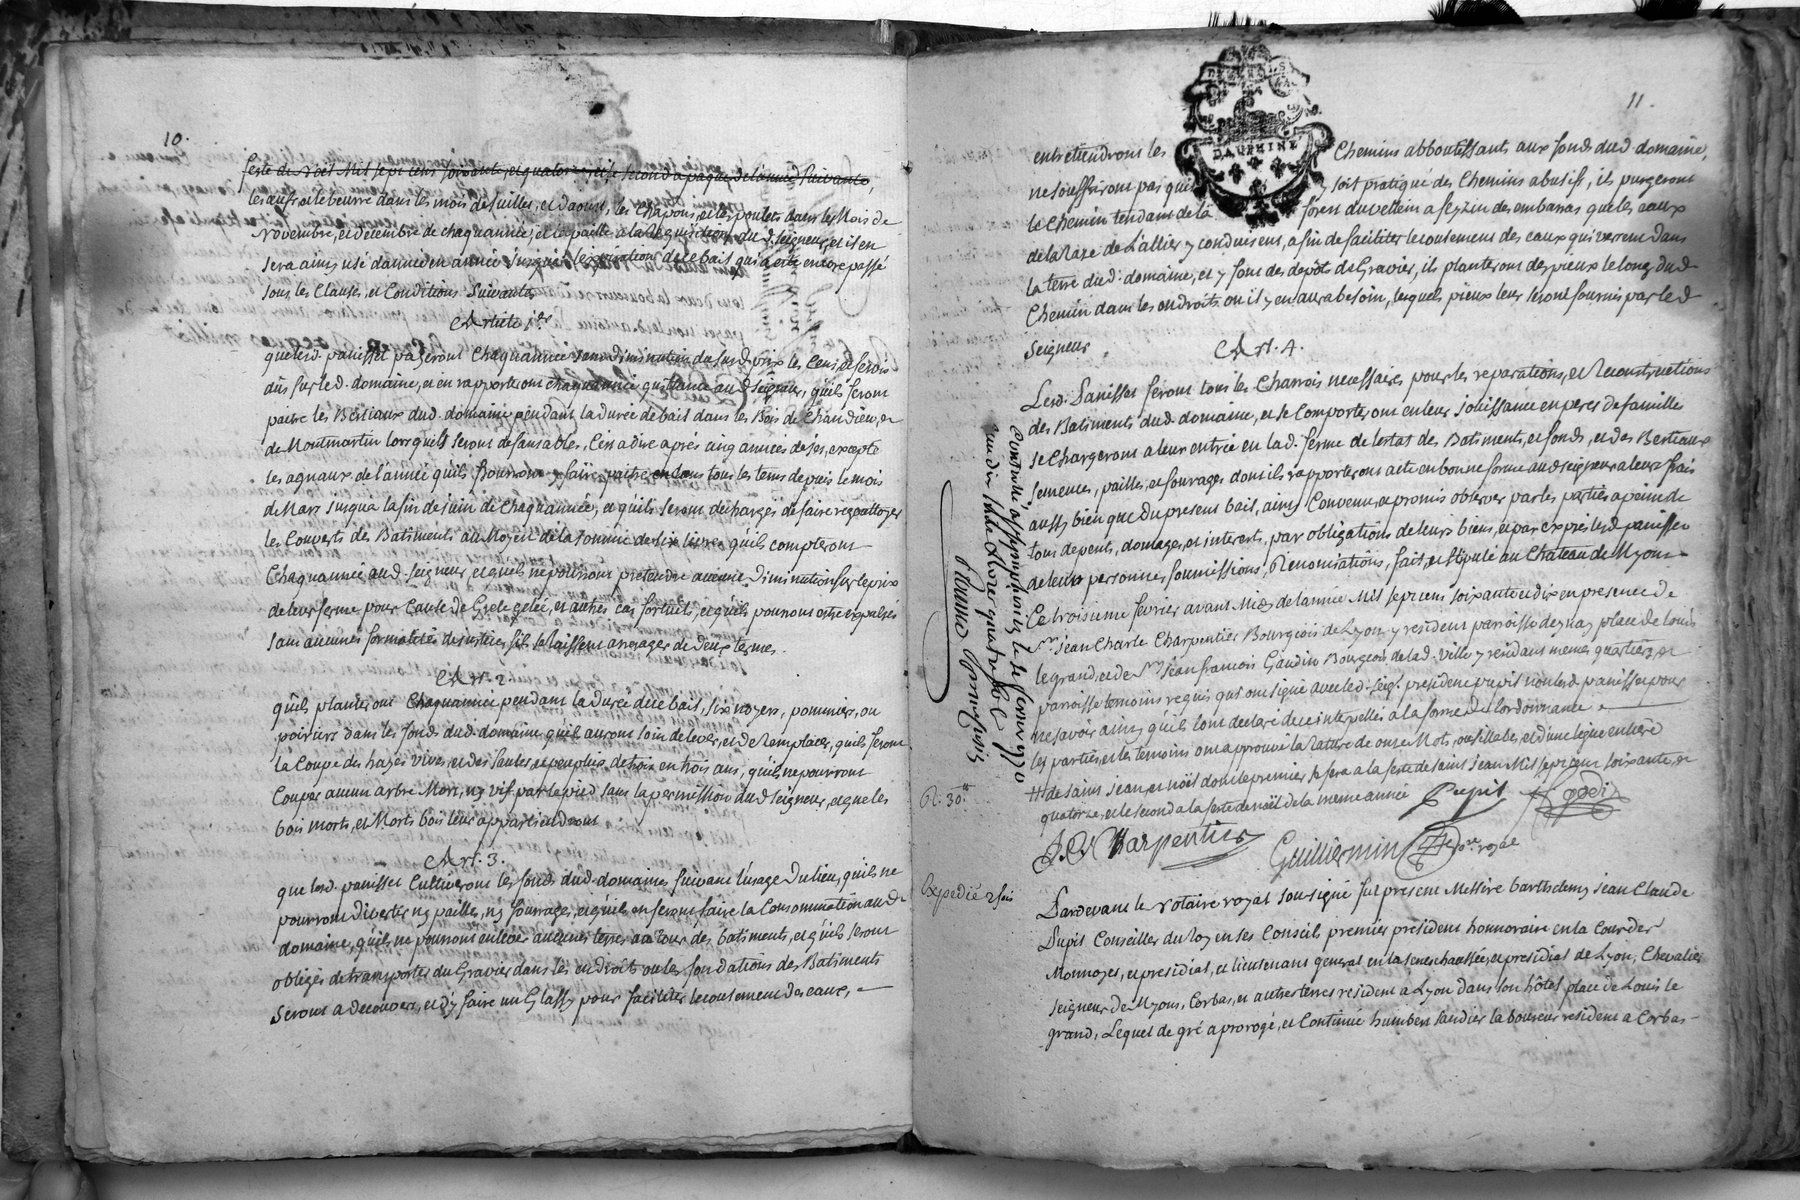 10.
feste de noël Mil sept cent soixante, et quatorze, et le second a paque de lannée suivante,
les œufs et le beurre dans les mois de juillet, et daoust, les chapons, et les poulets dans les Mois de
Novembre, et decembre de chaque année, et la paille a la Requisition dud. seigneur, et il en
sera ainsy usé dannée en année jusqua lexpiration de ce bail qui a esté encore passé
sous les Clauses, et Conditions Suivantes
Article 1er
que lesd. panisset payeront Chaque année sans diminution du susd. prix les Cens et servis
dûs sur led. domaine, et en rapporteront chaque année quittance aud. seigneur, quils feront
paitre les Bestiaux dud. domaine pendant la durée de bail dans les Bois de Chandieu, et
de Montmartin lors quils seront defansables, Cest a dire aprés cinq années de ses, excepté
les agneaux de l'année quils pourront y faire paitre en tous tems depuis le mois
de Mars jusqua la fin de juin de Chaque année, et quils seront dechargés de faire repattoyer
les Couverts des Batiments au Moyen de la somme de six livres quils compteront
Chaque année aud. seigneur, et quils ne pourront pretendre aucune Diminution sur le prix
de leur ferme pour Cause de Grele gelée, et autres cas fortuits, et quils pourront estre expulsés
sans aucunes formalités de justice sils se laissent arrerager de Deux termes.
Art. 2
quils planteront Chaque année pendant la Durée de ce bail, six noyers, pommiers, ou
poiriers dans les fonds dud. domaine quils auront soin delever, et de Remplacer, quils feront
la Coupe des hayes vives, et des saules, et peupliers de trois en trois ans, quils ne pourront
Couper aucun arbre Mort, ny vif par le pied sans la permission dud. seigneur, et que les
bois morts, et Morts bois leur appartiendront
Art. 3.
que lesd. panisset Cultiveront les fonds dud. domaine suivant l'usage Du lieu, quils ne
pourront divertir ny pailles, ny fourrages, et quils en feront faire la Consommation aud.
domaine, quils ne pourront enlever aucunes terres au tour des batiments, et quils seront
obligés de transporter du Gravier dans les endroits ou les fondations des Batiments
seront a decouvert, et d'y faire un Glassy pour faciliter lecoulement des eaux,
11.
entretiendront les Chemins abboutissants aux fonds dud. domaine,
ne souffriront pas quil y soit pratiqué des Chemins abusifs, ils purgeront
le Chemin tendant de la forest du vellein a feyzin des embarras que les eaux
de la Raze de l'allier y conduisent, afin de faciliter lecoulement des eaux qui versent dans
la terre dud. domaine, et y font des depôts de Gravier, ils planteront des pieux le long dud.
Chemin dans les endroits ou il y en aura besoin, lesquels pieux leur seront fournis par led.
seigneur.
DAUPHINÉ
Art. 4.
Lesd. Panisset feront tous les Charrois necessaires pour les reparations, et Reconstructions
des Batiments dud. domaine, et se Comporteront en leur jouissance en peres de famille
se Chargeront a leur entrée en lad. ferme de l'estat des Batiments, et fonds, et des Bestiaux
semences, pailles, et fourages dont ils rapporteront acte en bonne forme aud. seigneur a leurs frais
aussy bien que du present bail, ainsy Convenu, et promis observer par les parties a peine de
tous depens, domages, et interests, par obligations de leurs biens, et par exprés lesd. panisset
de leurs personnes, soumissions, Renonciations, fait, et stipulé au Chateau de Myons
Ce troisieme fevrier avant Midy de lannée Mil sept cent soixante et dix en presence de
Sr. jean Charle Charpentier Bourgeois de Lyon y resident parroisse daynay place de louis
le grand, et de Sr. jean francois Gaudin Bourgeois de lad. ville y residant memes quartier, et
parroisse temoins requis qui ont signé avec led. seigr. president pupil non lesd. panisset pour
ne savoir ainsy quils l'ont declaré de ce interpellés a la forme de lordonnance
les parties, et les temoins ont approuvé la Rature de onze Mots, ou sillabe, et d'une ligne entiere
# de saint jean, et noël dont le premier se fera a la feste de saint jean Mil sept cent soixante, et
quatorze, et le second a la feste de noël de la meme année Pupil Gaudin
J. C. Charpentier Guilliermin Nore. royal
R. 30.tt
Expedié 2 fois
Pardevant le Notaire royal soussigné fut present Messire barthelemy jean Claude
Pupil Conseiller du roy en ses Conseils premier president honnoraire en la Cour des
Monnoyes, et presidial, et lieutenant general en la senechaussée, et presidial de Lyon, Chevalier
seigneur de Myons, Corbas, et autres terres resident a Lyon dans son hôtel place de Louis le
grand, Lequel de gré a prorogé, et Continué humbert sandier laboureur resident a Corbas